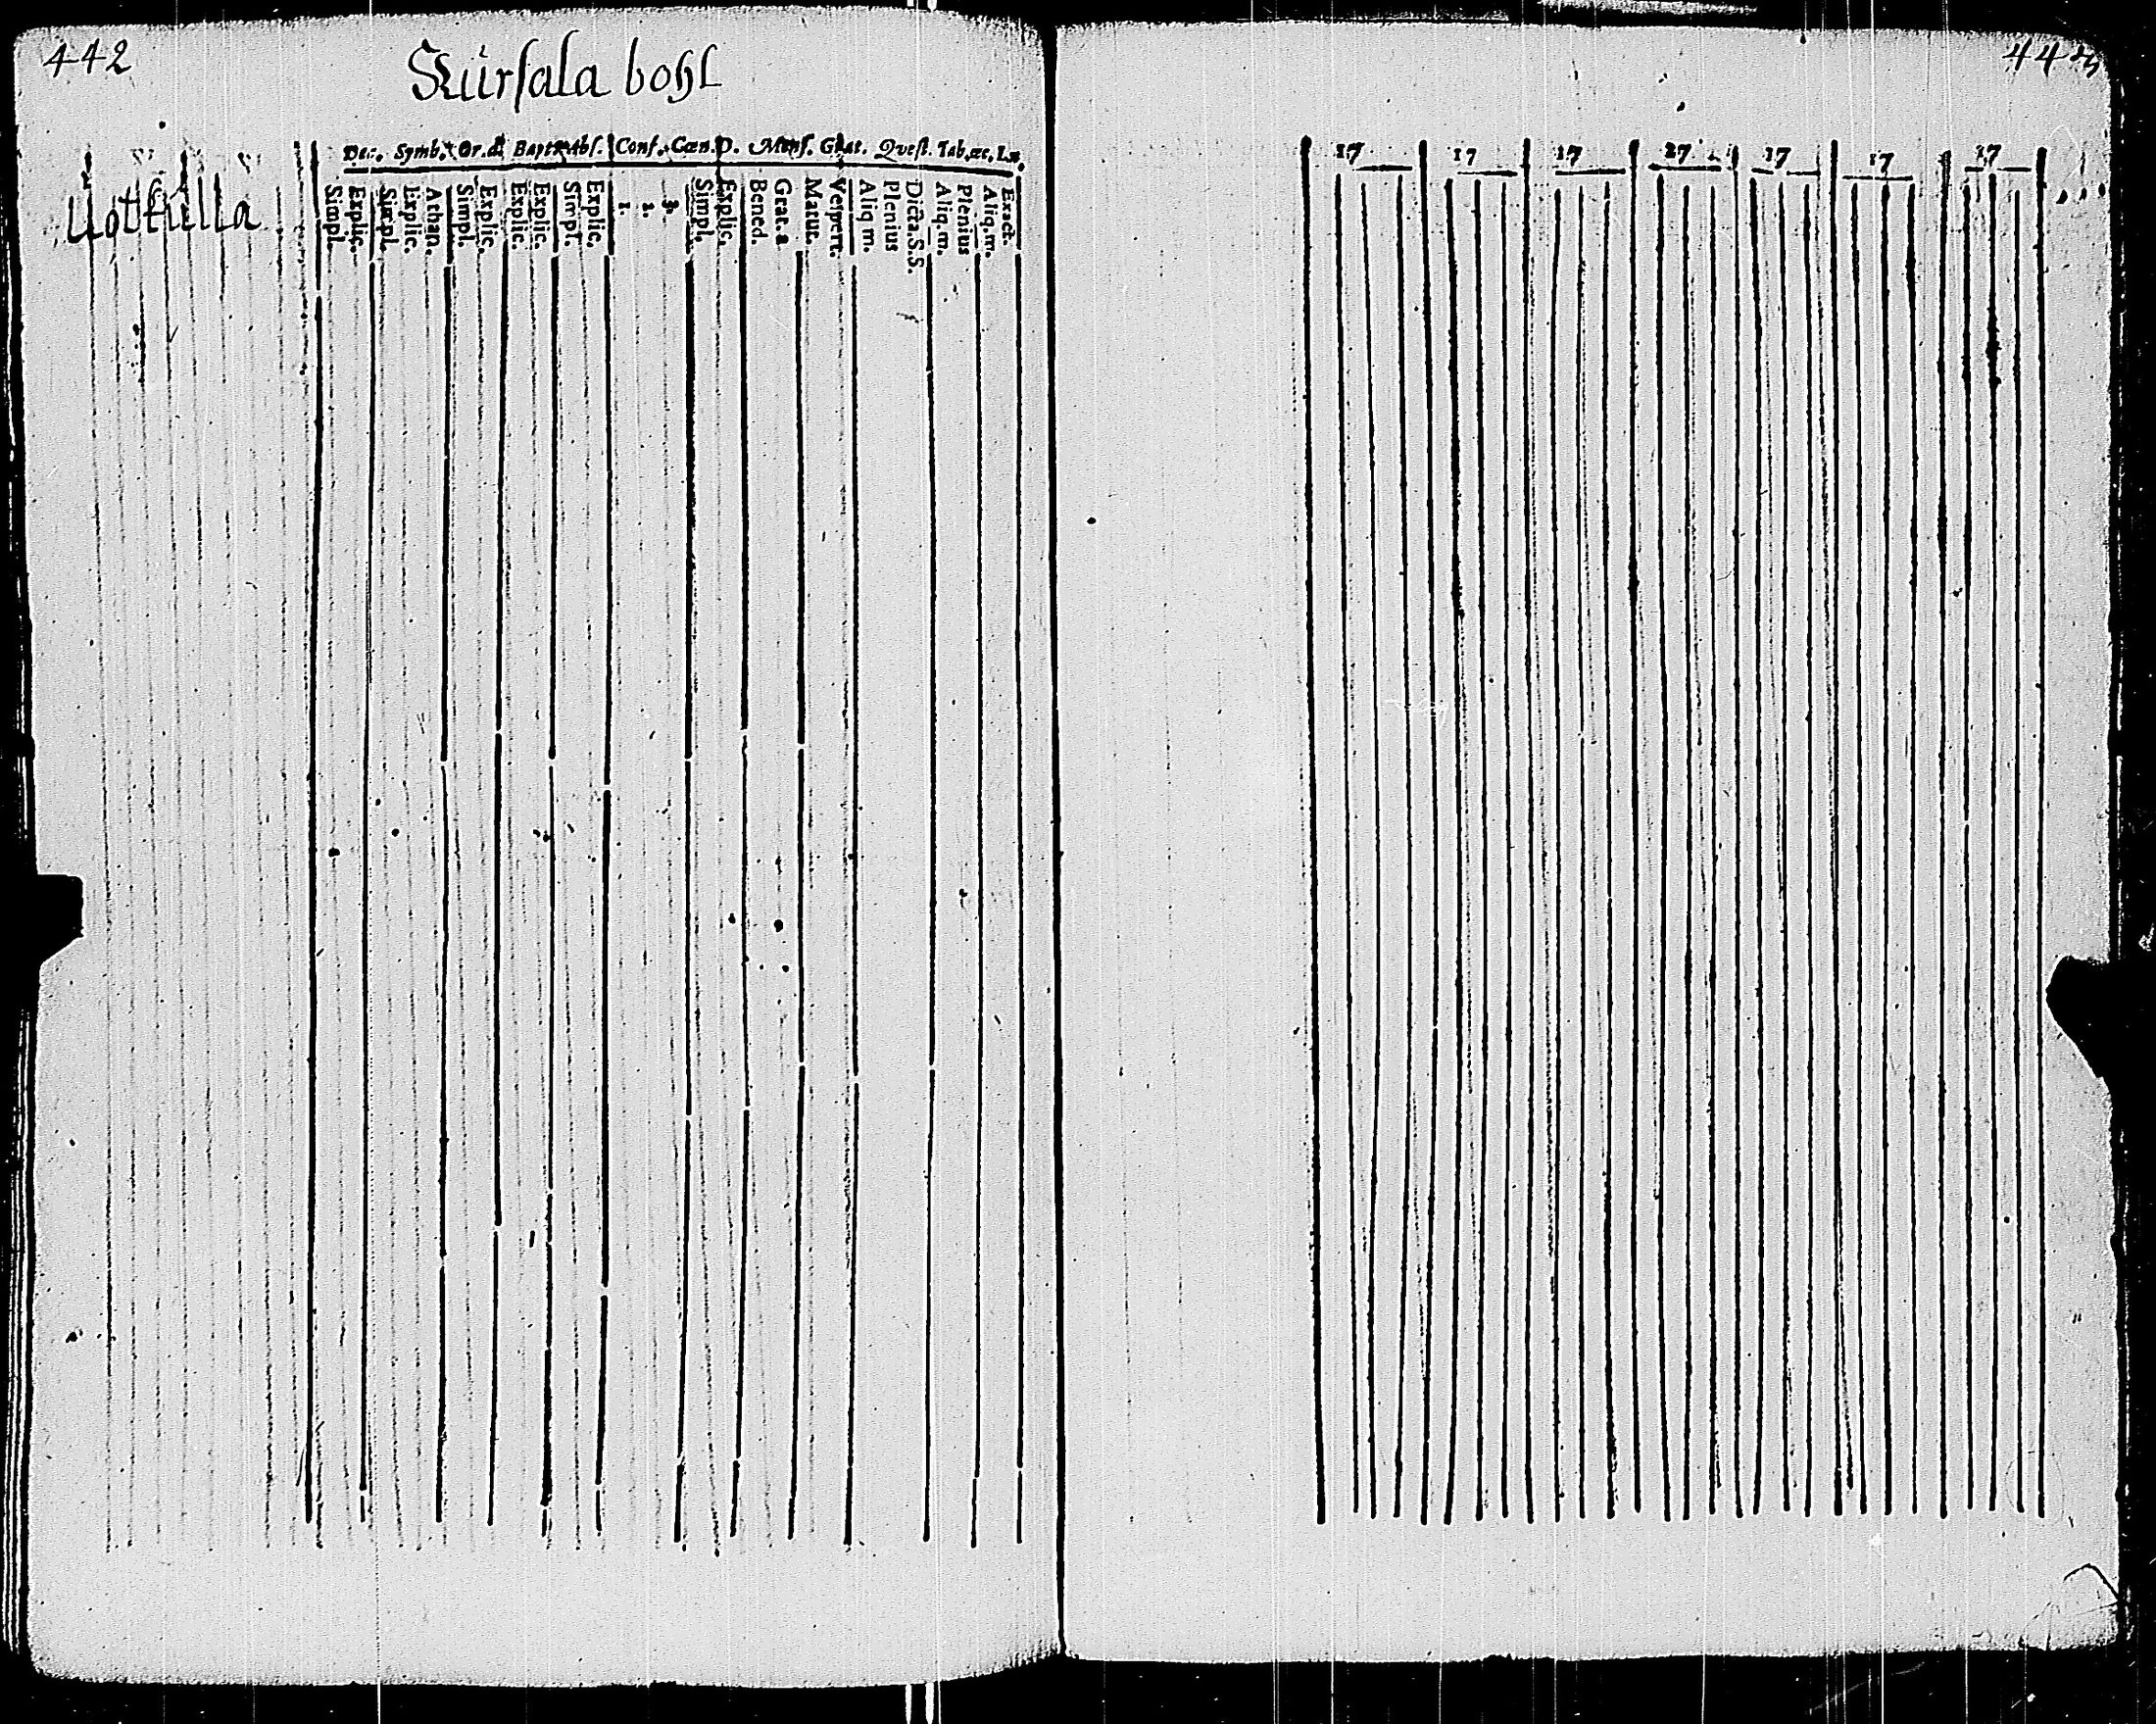 442
Kürsala bohl
443
Dec. Symb. Or.d. Bapt. Abs. Conf. Cœn.D. Mens. Grat. Qvest. Tab.œc. Lx.
17 17 17 17 17 17 17
Uotkilla
Simpl. Explic. Simpl. Explic. Athan. Simpl. Explic. Explic. Explic. Simpl. Explic. 1. 2. 3. Simpl. Explic. Bened. Grat. a. Matut. Vespert. Aliq m. Plenius Dicta.S.S. Aliq.m. Plenius Aliq.m. Exact.